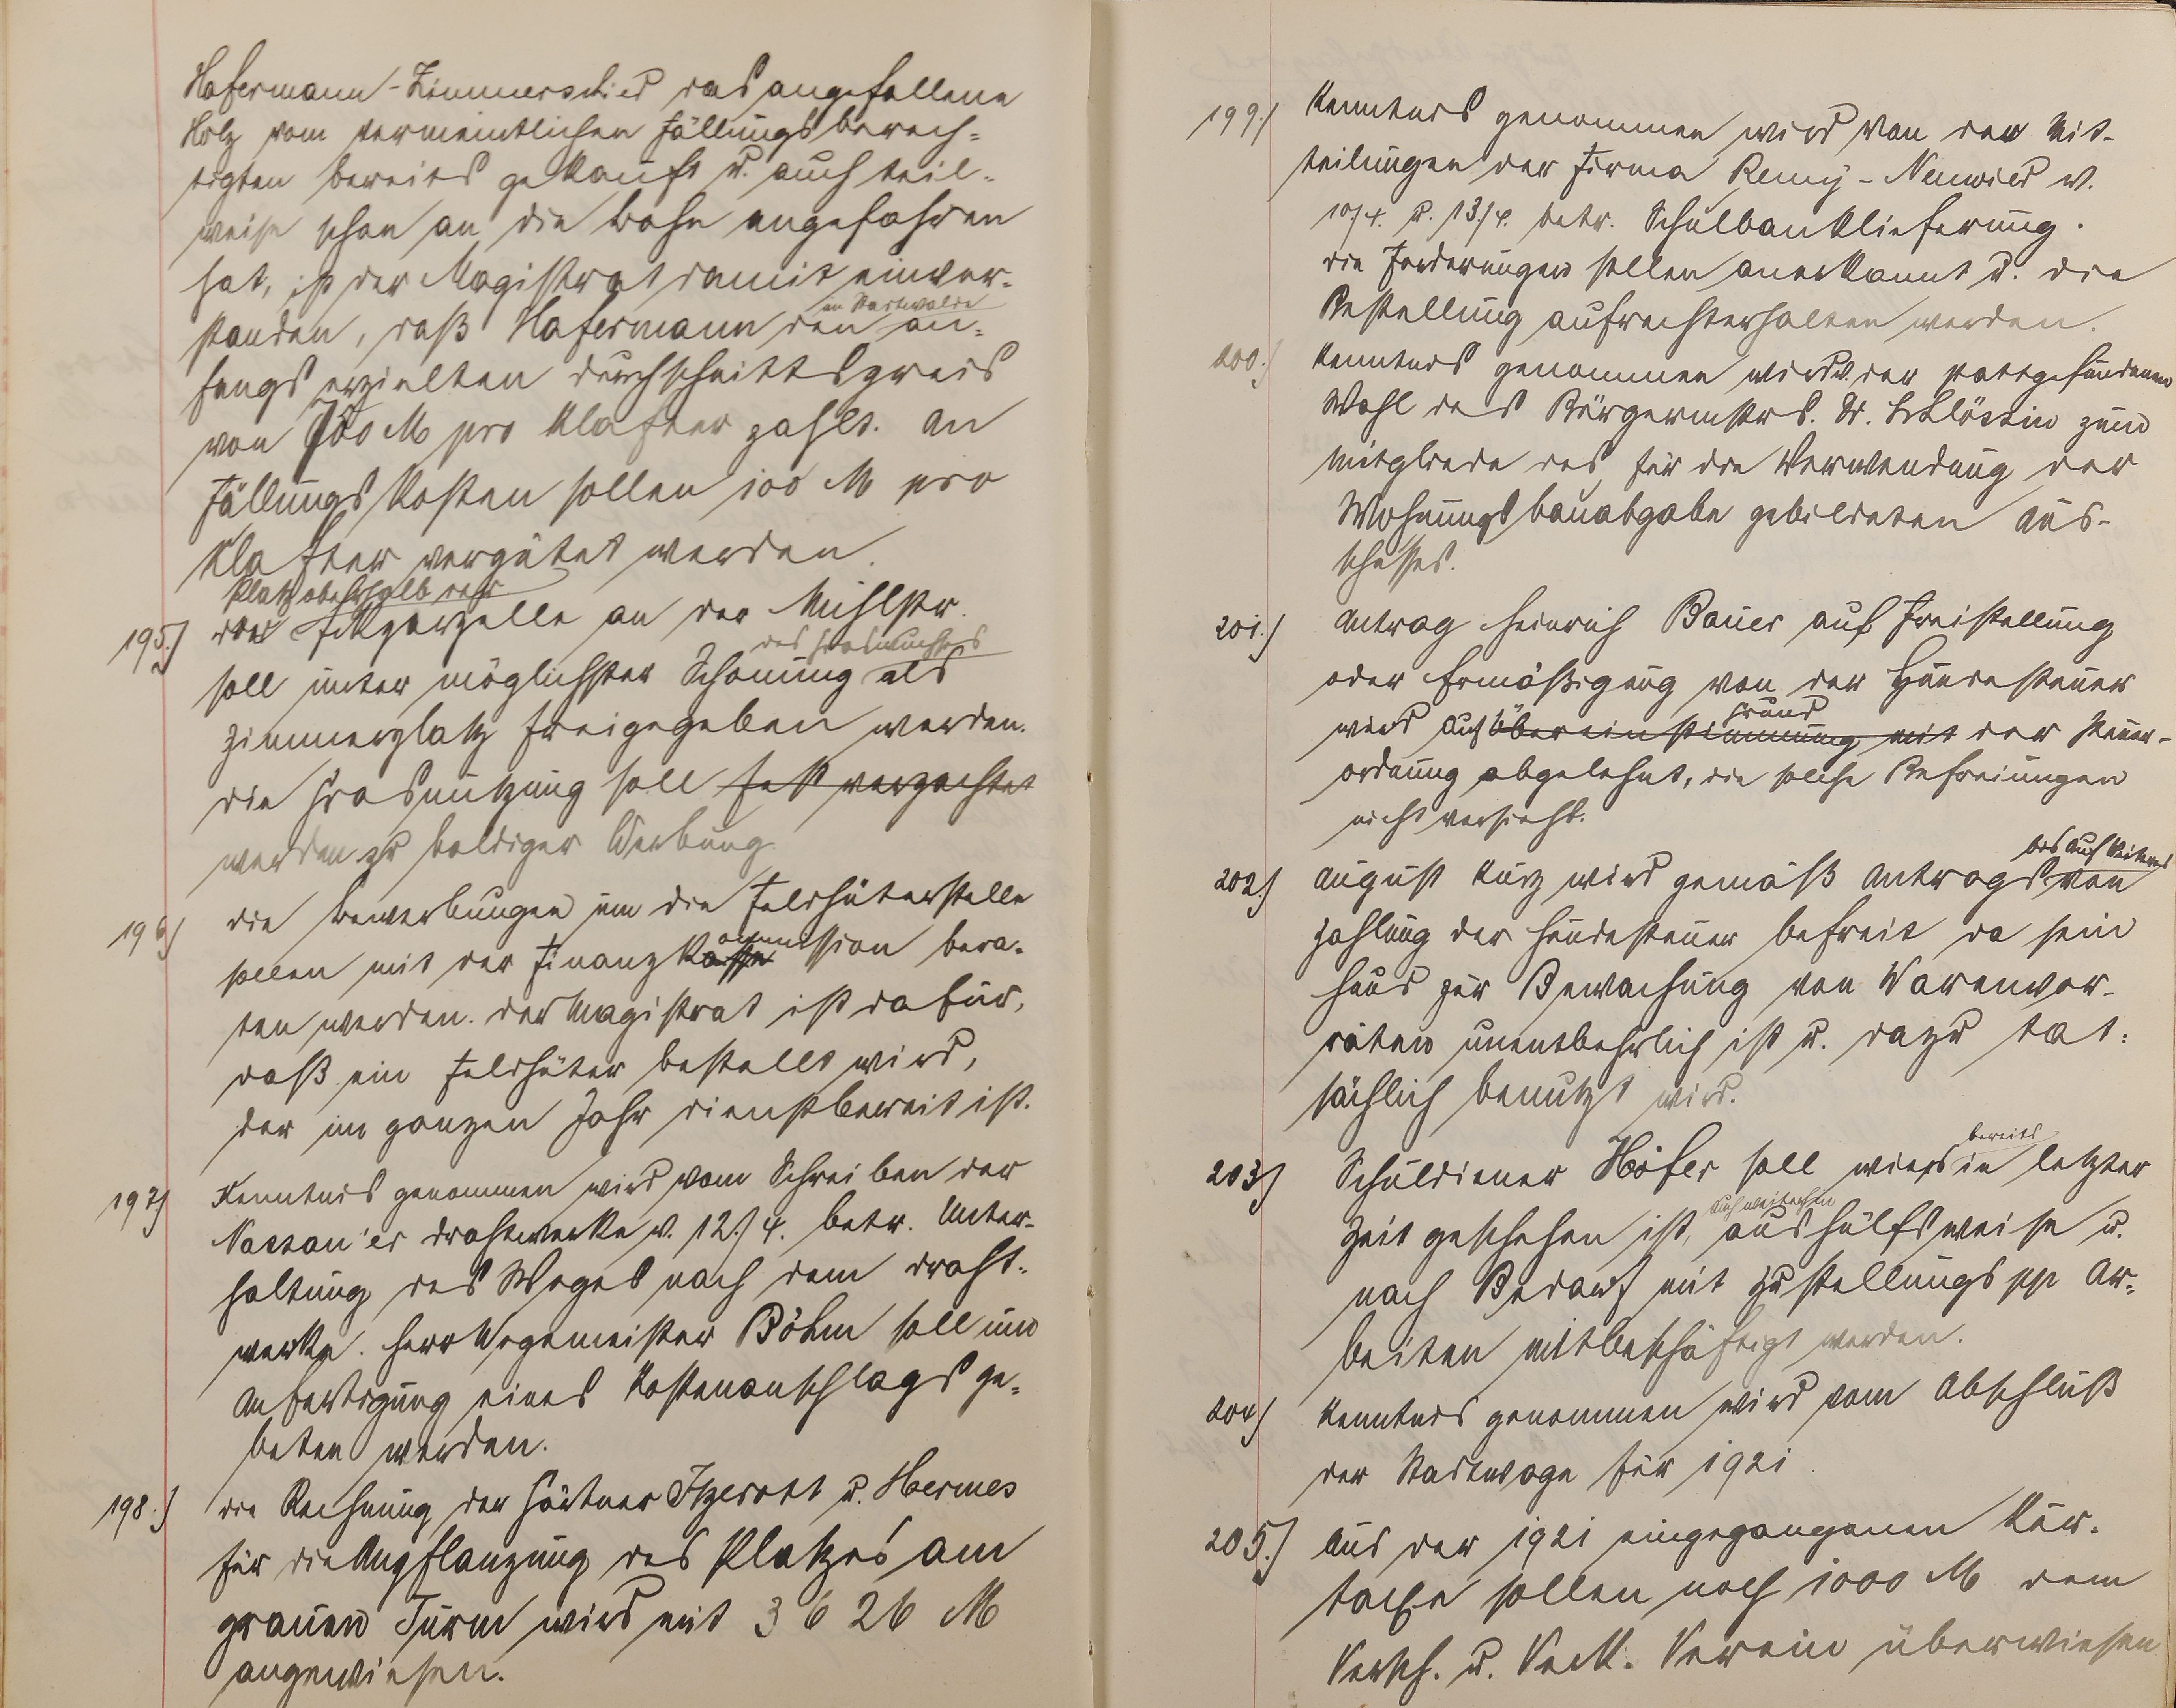 Hafermann-Zimmerschied das angefallene
Holz vom vermeintlichen Fällungsberech=
tigten bereits gekauft u. auch teil-
weise schon an die Bahn angefahren
hat, ist der Magistrat damit einver-
im Stadtwalde
standen, daß Hafermann den an=
fangs erzielten Durchschnittspreis
von 700 M pro Klafter zahlt. An
Fällungskosten sollen 100 M pro
Klafter vergütet werden.
Platz oberhalb der
195.) der Fettparzelle an der Mühlstr.
des Graswuchses
soll unter möglichster Schonung als
Zimmerplatz freigegeben werden.
die Grasnutzung soll fest verpachtet
werden zu baldiger Werbung.
196) die Bewerbungen um die Feldhüterstelle
sollen mit der Finanzkommission bera-
ten werden. der Magistrat ist dafür,
daß ein Feldhüter bestellt wird,
der im ganzen Jahr dienstbereit ist.
197) Kenntnis genommen wird vom Schreiben der
Nassau'er Drahtwerke v. 12./4. betr. Unter-
haltung des Weges nach dem Draht-
werke. Herr Wegemeister Böhm soll um
Anfertigung eines Kostenanschlags ge-
beten werden.
198.) die Rechnung der Gärtner Itzerott u. Hermes
für die Anpflanzung des Platzes am
grauen Turm wird mit 3626 M
angewiesen.
199.) Kenntnis genommen wird von den Mit-
teilungen der Firma Remy-Neuwied v.
10/4. u. 13./4. betr. Schulbanklieferung.
die Forderungen sollen anerkannt u. die
Bestellung aufrechterhalten werden.
200.) Kenntnis genommen wird v. der stattgefundenen
Wahl des Bürgermstrs. Dr. Schlössin zum
Mitgliede des für die Verwendung der
Wohnungsbauabgabe gebildeten Aus-
schusses.
201.) Antrag Heinrich Bauer auf Freistellung
oder Ermäßigung von der Hundesteuer
Grund
wird auf Übereinstimmung mit der Steuer-
ordnung abgelehnt, die solche Befreiungen
nicht vorsieht.
bis auf Weiteres
202.) August Kurz wird gemäß Antrags von
Zahlung der Hundesteuer befreit da sein
Hund zur Bewachung von Warenvor-
räten unentbehrlich ist u. dazu tat-
sächlich benutzt wird.
bereits
203) Schuldiener Höfer soll wie in letzter
auch weiterhin
Zeit geschehen ist, aushülfsweise u.
nach Bedarf mit Zustellungs pp Ar-
beiten mitbeschäftigt werden.
204) Kenntnis genommen wird vom Abschluß
der Stadtwage für 1921.
205.) Aus der 1921 eingegangenen Kur-
taxe sollen noch 1000 M dem
Versch. u. Verk. Verein überwiesen